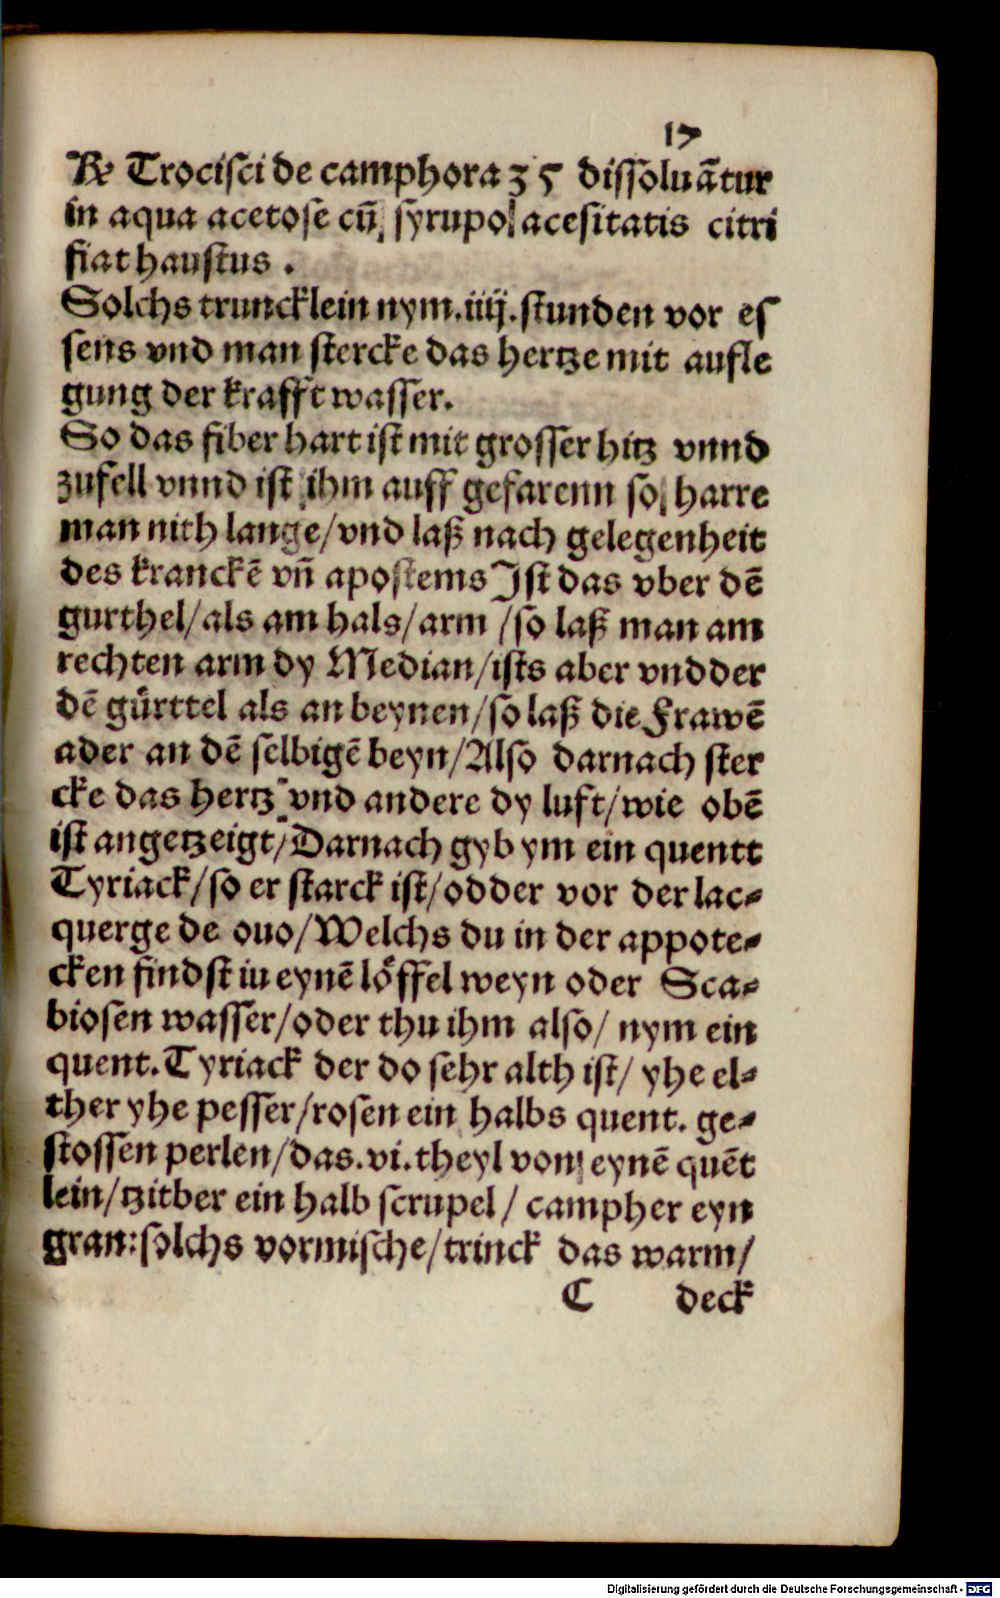 17
℞ Trocisci de camphora ʒ 5 dissoluãtur
in aqua acetose cũ syrupo acesitatis citri
fiat haustus .
Solchs truncklein nym.iiij.stunden vor es
sens vnd man stercke das hertze mit aufle
gung der krafft wasser.
So das fiber hart ist mit grosser hitz vnnd
zufell vnnd ist ihm auff gefarenn so harre
man nith lange/vnd laß nach gelegenheit
des kranckẽ vñ apostems Ist das vber dẽ
gurthel/als am hals/arm /so laß man am
rechten arm dy Median/ists aber vndder
dẽ gürttel als an beynen/so laß die Frawẽ
ader an dẽ selbigẽ beyn/Also darnach ster
cke das hertz vnd andere dy luft/wie obẽ
ist angetzeigt/Darnach gyb ym ein quentt
Tyriack/so er starck ist/odder vor der lac⸗
querge de ouo/Welchs du in der appote⸗
cken findst iu eynẽ löffel weyn oder Sca⸗
biosen wasser/oder thu ihm also/ nym ein
quent.Tyriack der do sehr alth ist/ yhe el⸗
ther yhe pesser/rosen ein halbs quent. ge⸗
stossen perlen/das.vi.theyl von eynẽ quẽt
lein/tzitber ein halb scrupel/ campher eyn
gran:solchs vormische/trinck das warm/
C deck
Digitalisierung gefördert durch die Deutsche Forschungsgemeinschaft - DFG